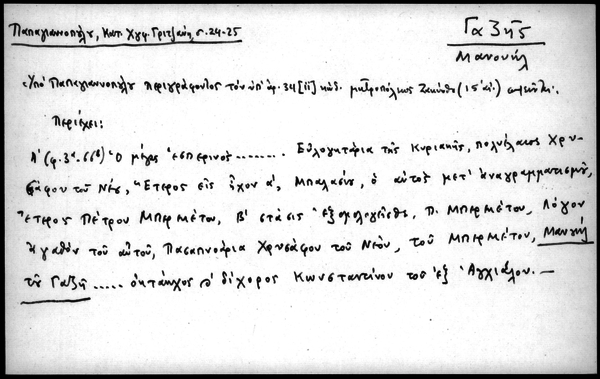 Παπαγιαννοπούλου, Κατ. Χγφ. Γριτσάνη, σ. 24-25
Γαζῆς
Μανουήλ
Ὑπό Παπαγιαννοπούλου περιγράφοντος τόν ὑπ' ἀρ. 34 [ii] κώδ. μητροπόλεως Ζακύνθου (15 αἰ.)
Περιέχει:
Α' (φ. 3α-66β) Ὁ μέγας ἑσπερινός ........ Εὐλογητάρια τῆς Κυριακῆς, πολυέλαιος Χρυ-
σάφου τοῦ Νέου, Ἕτερος εἰς ἦχον α', Μπαλασίου, ὁ αὐτός μετ' ἀναγραμματισμοῦ,
Ἕτερος Πέτρου Μπερεκέτου, Β' στάσις Ἐξομολογεῖσθε, Π. Μπερεκέτου, Λόγον
ἀγαθόν τοῦ αὐτοῦ, Πασαπνοάρια Χρυσάφου τοῦ Νέου, τοῦ Μπερεκέτου, Μανουήλ
τοῦ Γαζῆ ..... ὀκτάηχος δίχορος Κωνσταντίνου τοῦ ἐξ Ἀγχιάλου. —